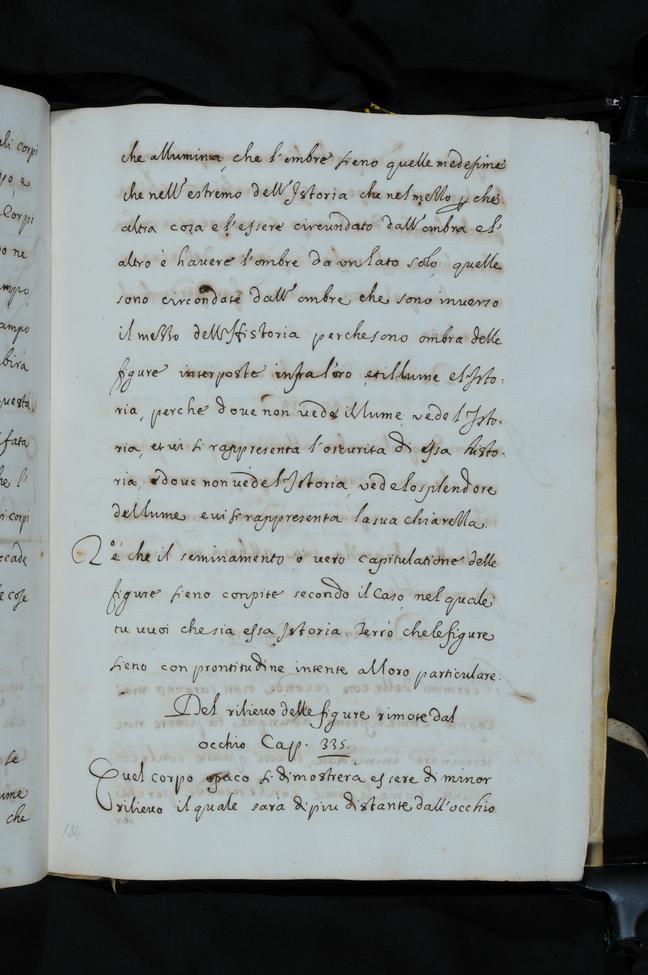 che allumina, che l'ombre sieno quelle medesime
che nell'estremo dell'Istoria che nel mezzo, che
altra coza e l'essere circundato dall'ombra e l'
altro è havere l'ombre da un lato solo, quelle
sono circondate dall'ombre che sono inverso
il mezzo dell'Historia perche sono ombra delle
figure interposte infra loro et il lume e l'Isto:
ria, perche dove non vede il lume vede l'Isto:
ria, et vi si rappresenta l'oscurita di essa histo:
ria e dove non vede l'Istoria, vede lo splendore
del lume e vi si rappresenta la sua chiarezza.
2° é che il seminamento o vero capitulatione delle
figure sieno conpite secondo il Caso nel quale
tu vuoi che sia essa Istoria Terzo che le figure
sieno con prontitudine intente al loro particulare.
Del rilievo delle figure rimote dal
occhio Cap. 335.
Quel corpo opaco si dimostrerà essere di minor
rilievo il quale sara di piu distante dall'occhio
134
ali corpi
po, e
Corpi
po ne
ampo
ampo
questa
fata
he l'
i corpi
ecade
e cose
se
ume
che